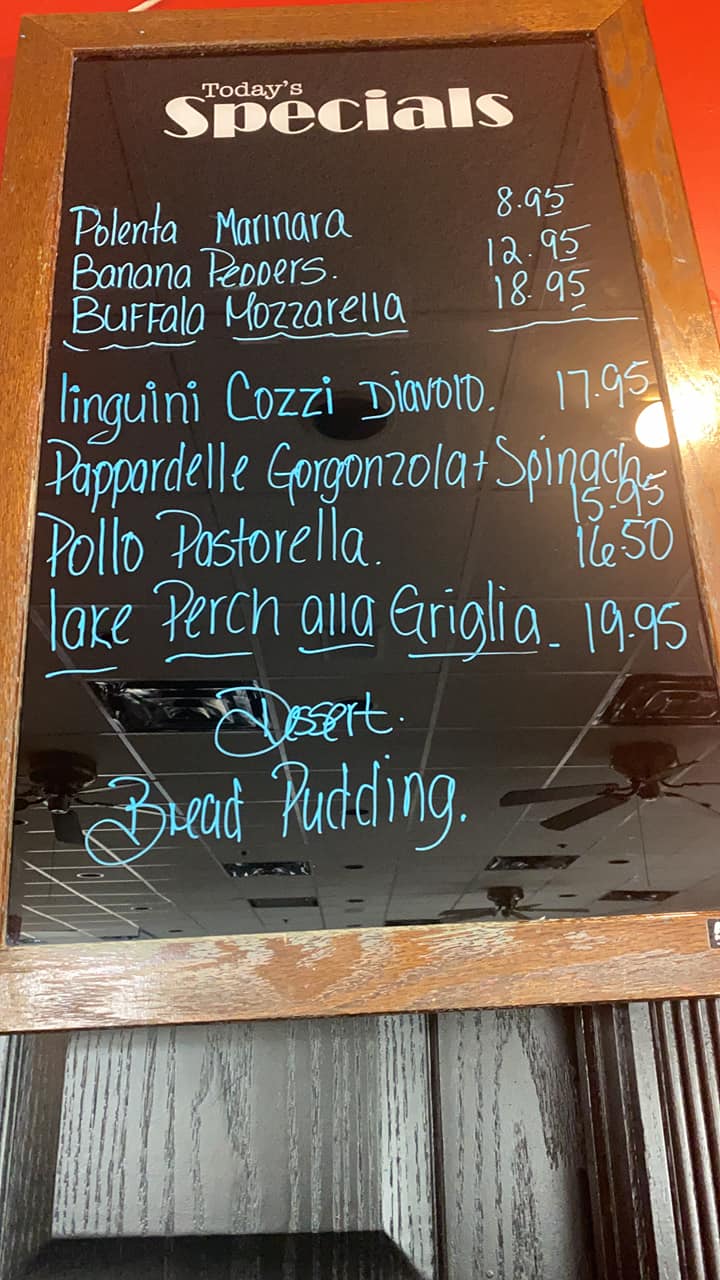 Today's
Specials
Polenta Marinara 8.95
Banana Peppers. 12.95
Buffalo Mozzarella 18.95
linguini Cozzi Diavolo. 17.95
Pappardelle Gorgonzola + Spinach
15.95
Pollo Pastorella. 16.50
lake Perch alla Griglia - 19.95
Dessert.
Bread Pudding.